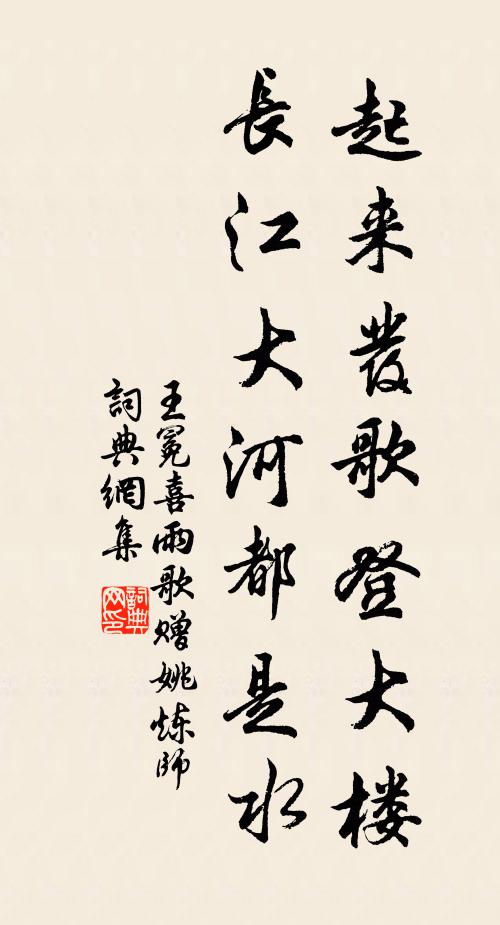 起来發歌登大楼
長江大河都是水
王冕喜雨歌赠姚炼師
詞典網集
詞典网印